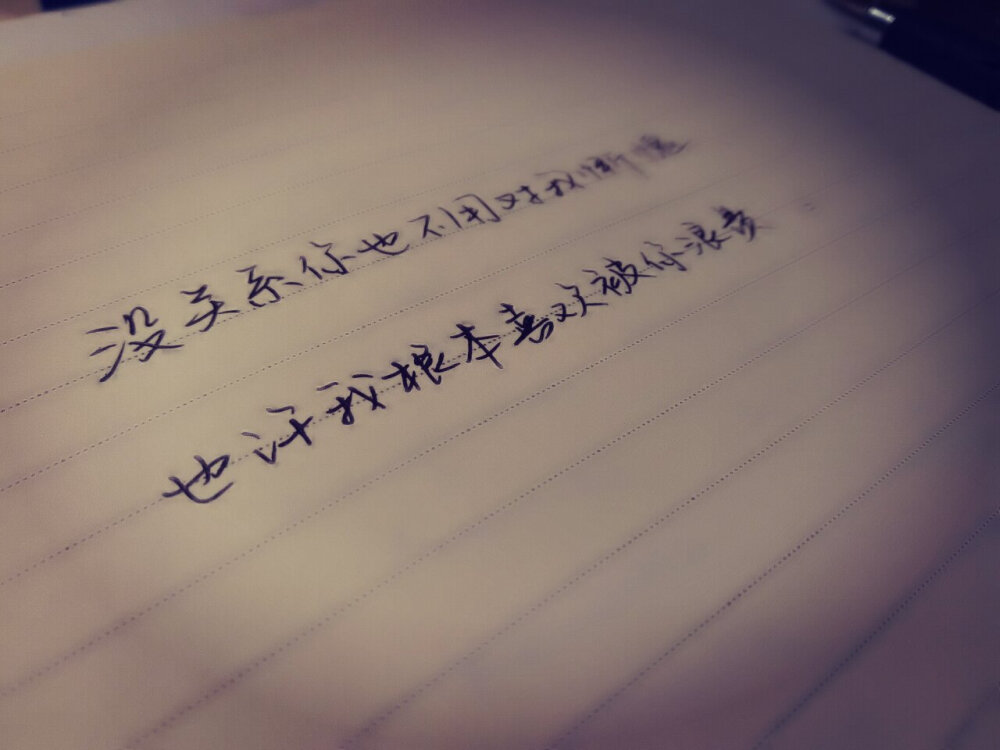 没关系你也不用对我惭愧
也许我根本喜欢被你浪费